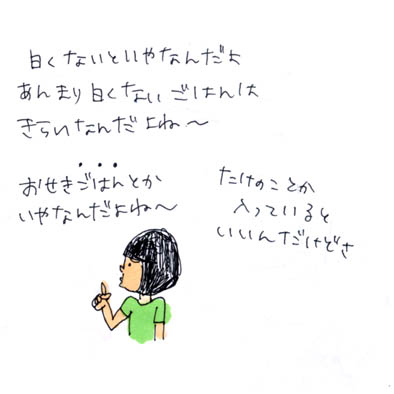 白くないといやなんだよ
あんまり白くないごはんは
きらいなんだよね〜
おせきごはんとか
いやなんだよね〜
たけのことか
入っていると
いいんだけどさ